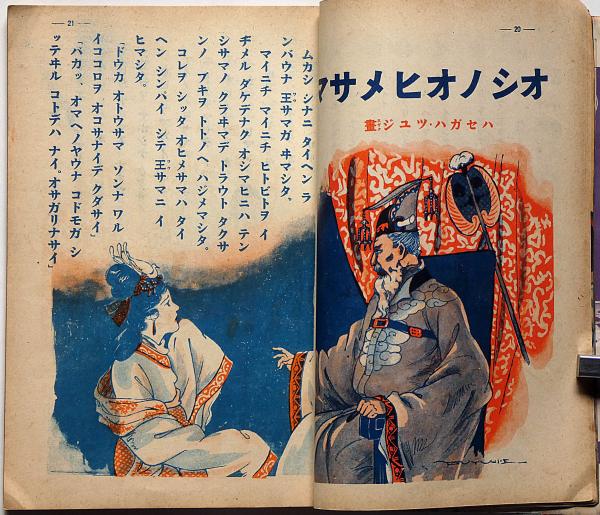 —20—
オシノオヒメサマ
ハセガハ・ツユジ畫
ムカシ シナニ タイヘン ラ
ンバウナ 王サマガ ヰマシタ、
マイニチ マイニチ ヒトビトヲ イ
ヂメル ダケデナク オシマヒニハ テン
シサマノ クラヰマデ トラウト タクサ
ンノ ブキヲ トトノヘ ハジメマシタ。
コレヲ シッタ オヒメサマハ タイ
ヘン シンパイ シテ 王サマニ イ
ヒマシタ。
「ドウカ オトウサマ ソンナ ワル
イココロヲ オコサナイデ クダサイ」
「バカッ、オマヘノヤウナ コドモガ シ
ッテヰル コトデハ ナイ。オサガリナサイ」
—21—